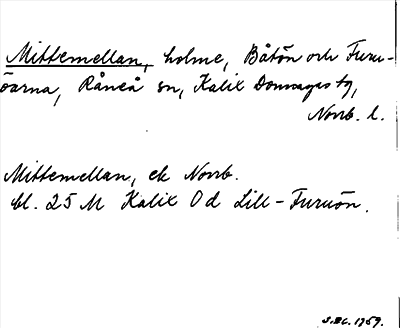 Mittemellan, holme, Båtön och Furu-
öarna, Råneå sn, Kalix Domsagas tg,
Norrb. l.
Mittemellan, ek Norrb.
bl. 25 M Kalix Od Lill-Furuön.
1959.